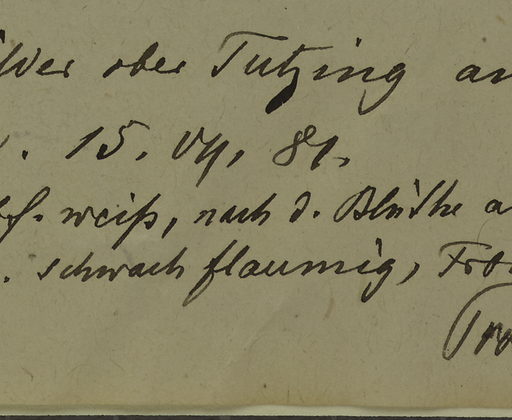 ober Tutzing an
15. VII. 81.
weiß, nach d. Blüthe a
schwach flaumig,